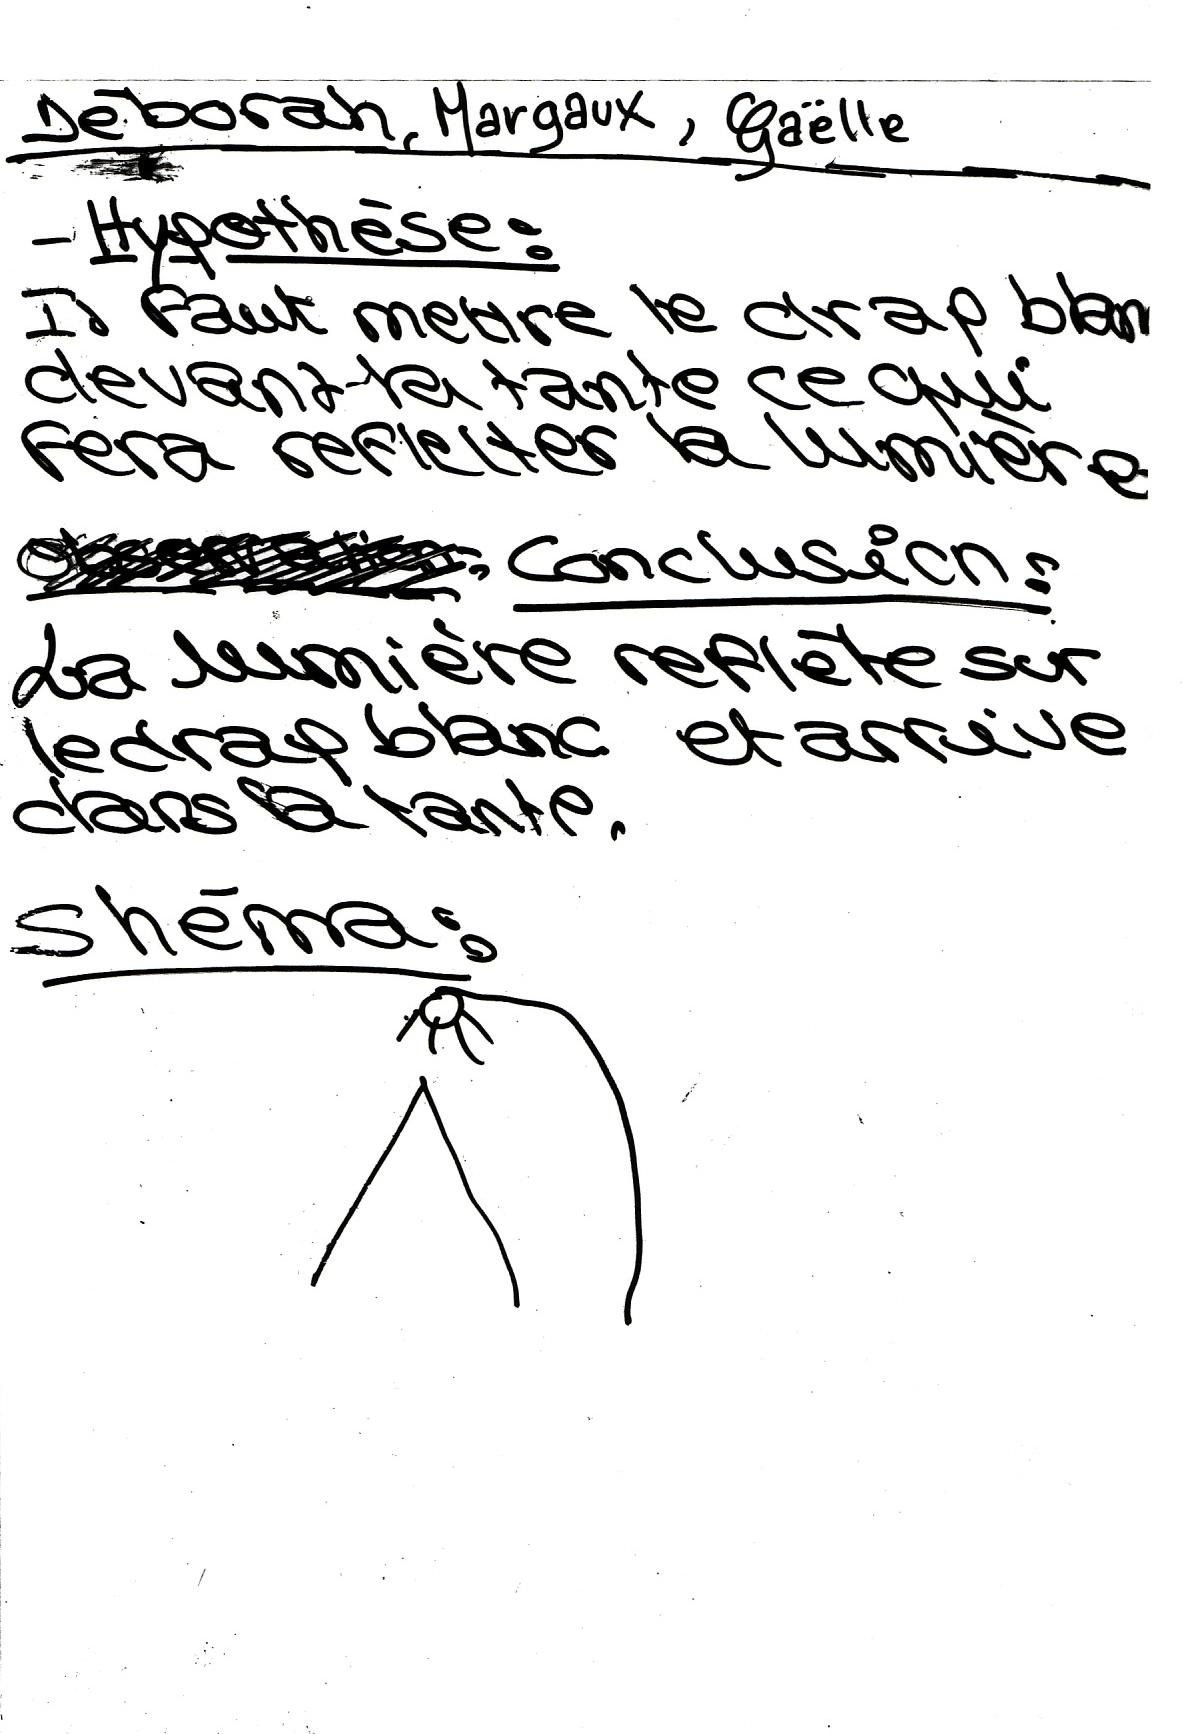 Déborah, Margaux, Gaëlle
- Hypothèse:
Il faut mettre le drap blan
devant la tante ce qui
fera refleter la lumière
Conclusion:
La lumière reflète sur
le drap blanc et arrive
dans la tante.
Shéma: